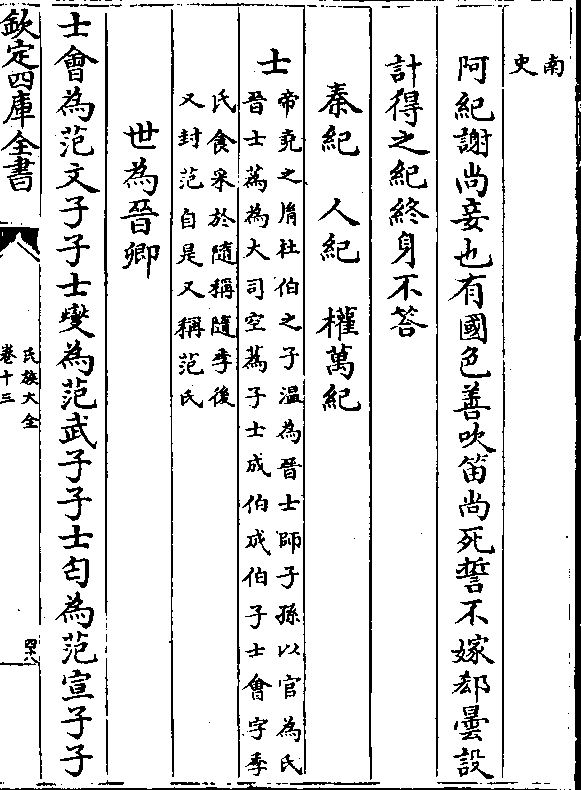 南
史
阿紀謝尚妾也有國色善吹笛尚死誓不嫁郗曇設
計得之紀終身不答
秦紀　人紀　權萬紀
士
帝堯之胤杜伯之子溫為晉士師子孫以官為氏
晉士蒍為大司空蒍子士成伯成伯子士會字季
氏食采於隨稱隨季後
又封范自是又稱范氏
世為晉卿
士會為范文子子士燮為范武子子士匄為范宣子子
欽定四庫全書
氏族大全
卷十三